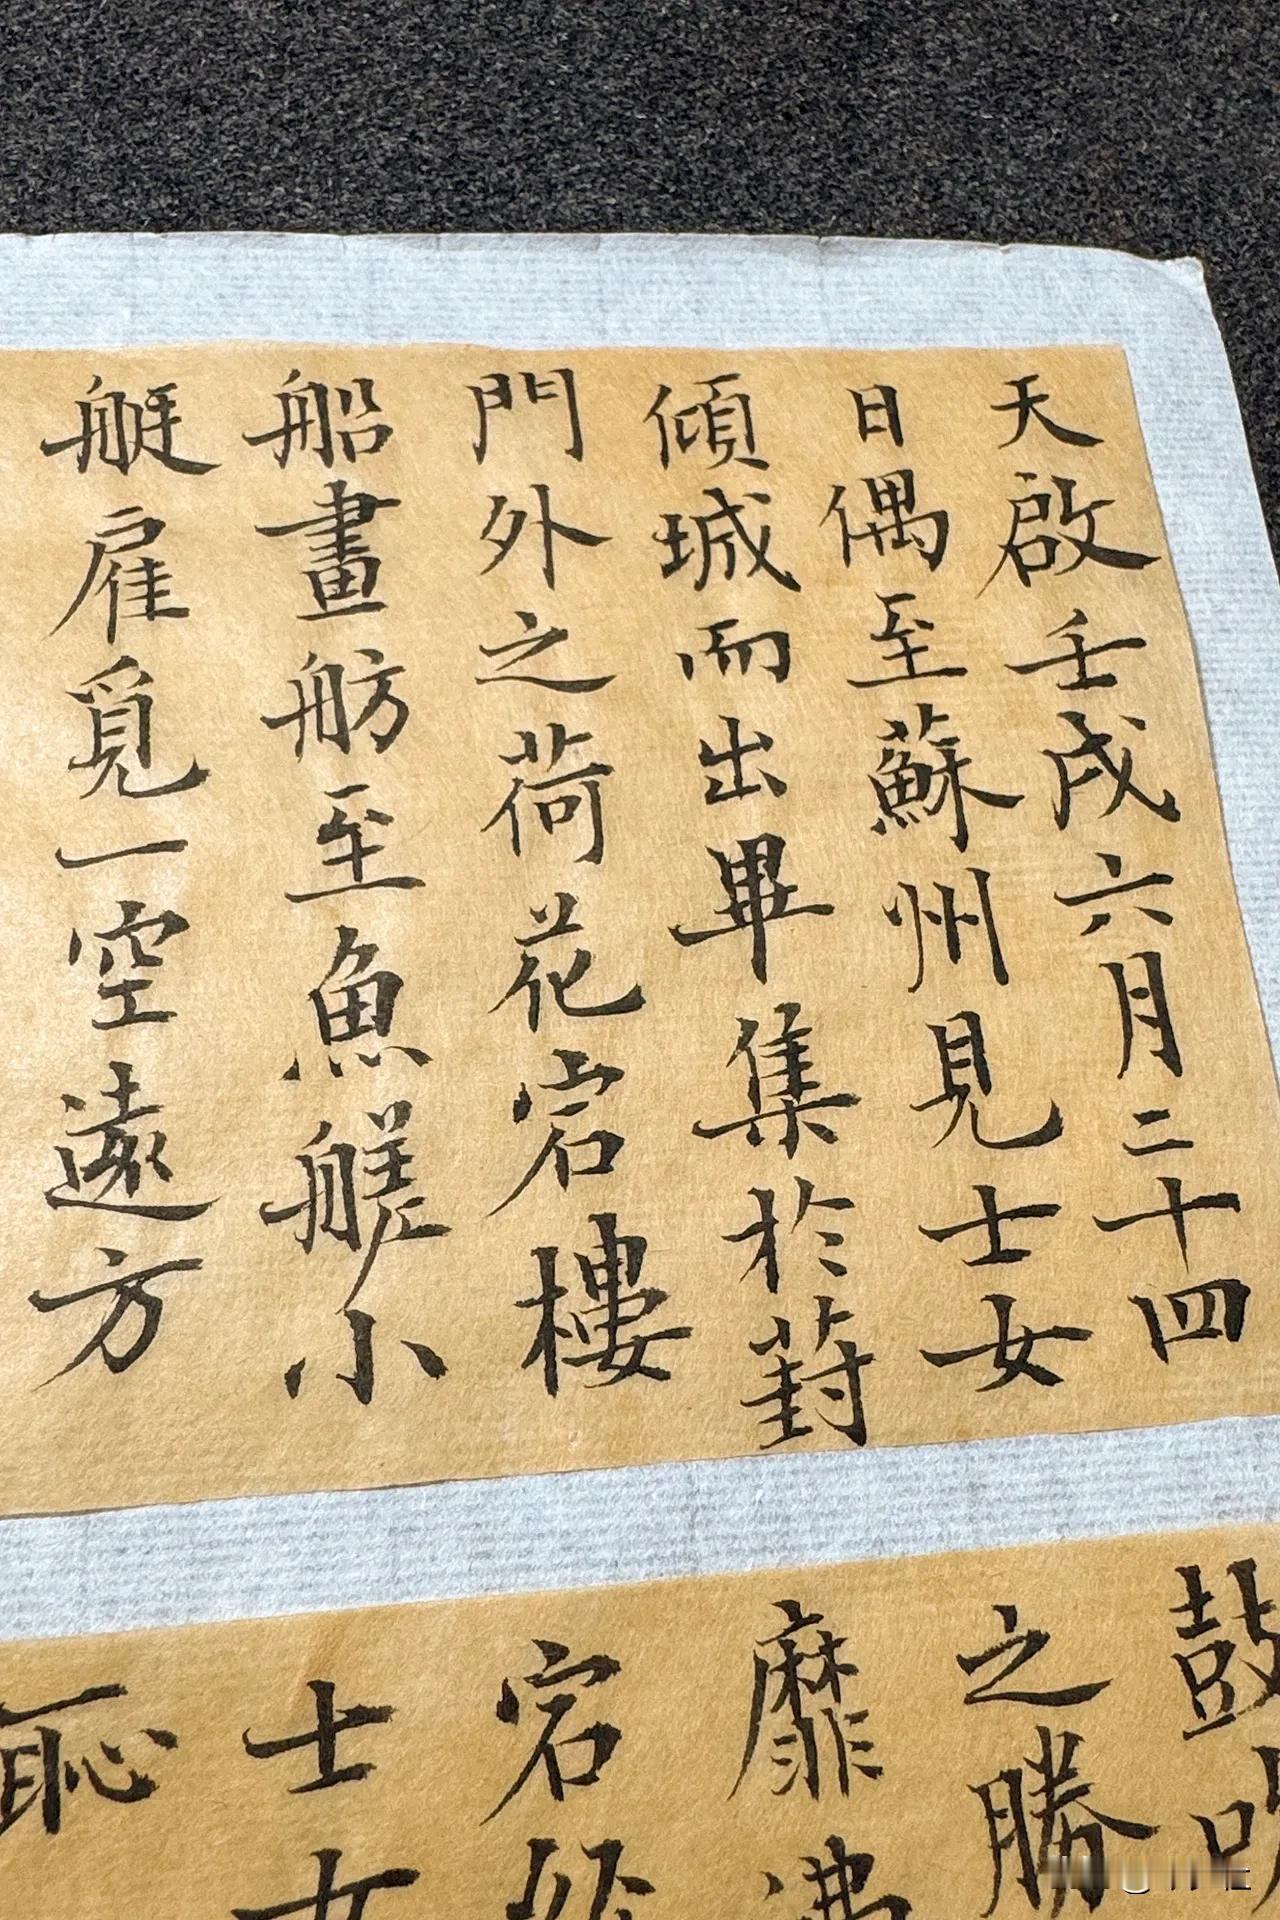 天啟壬戌六月二十四
日偶至蘇州見士女
傾城而出畢集於葑
門外之荷花宕樓
船畫舫至魚艖小
艇雇覓一空遠方
鼓吹
之勝
靡沸
宕
士女
恥